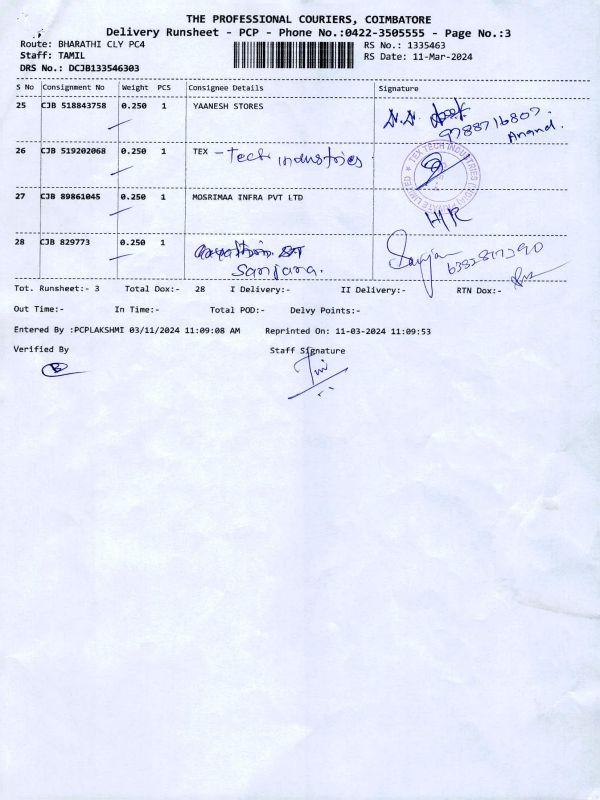 THE PROFESSIONAL COURIERS, COIMBATORE
Delivery Runsheet - PCP - Phone No.:0422-3505555 - Page No.:3
Route: BHARATHI CLY PC4 RS No.: 1335463
Staff: TAMIL RS Date: 11-Mar-2024
DRS No.: DCJB133546303
S No Consignment No Weight PCS Consignee Details Signature
25 CJB 518843758 0.250 1 YAANESH STORES
9788716807.
Anand.
26 CJB 519202068 0.250 1 TEX - Tech industries
TEX TECH INDUSTRIES (INDIA) PRIVATE LIMITED
27 CJB 89861045 0.250 1 MOSRIMAA INFRA PVT LTD
H/R
28 CJB 829773 0.250 1
Sanjana.
Tot. Runsheet:- 3 Total Dox:- 28 I Delivery:- II Delivery:- RTN Dox:-
Out Time:- In Time:- Total POD:- Delvy Points:-
Entered By :PCPLAKSHMI 03/11/2024 11:09:08 AM Reprinted On: 11-03-2024 11:09:53
Verified By Staff Signature